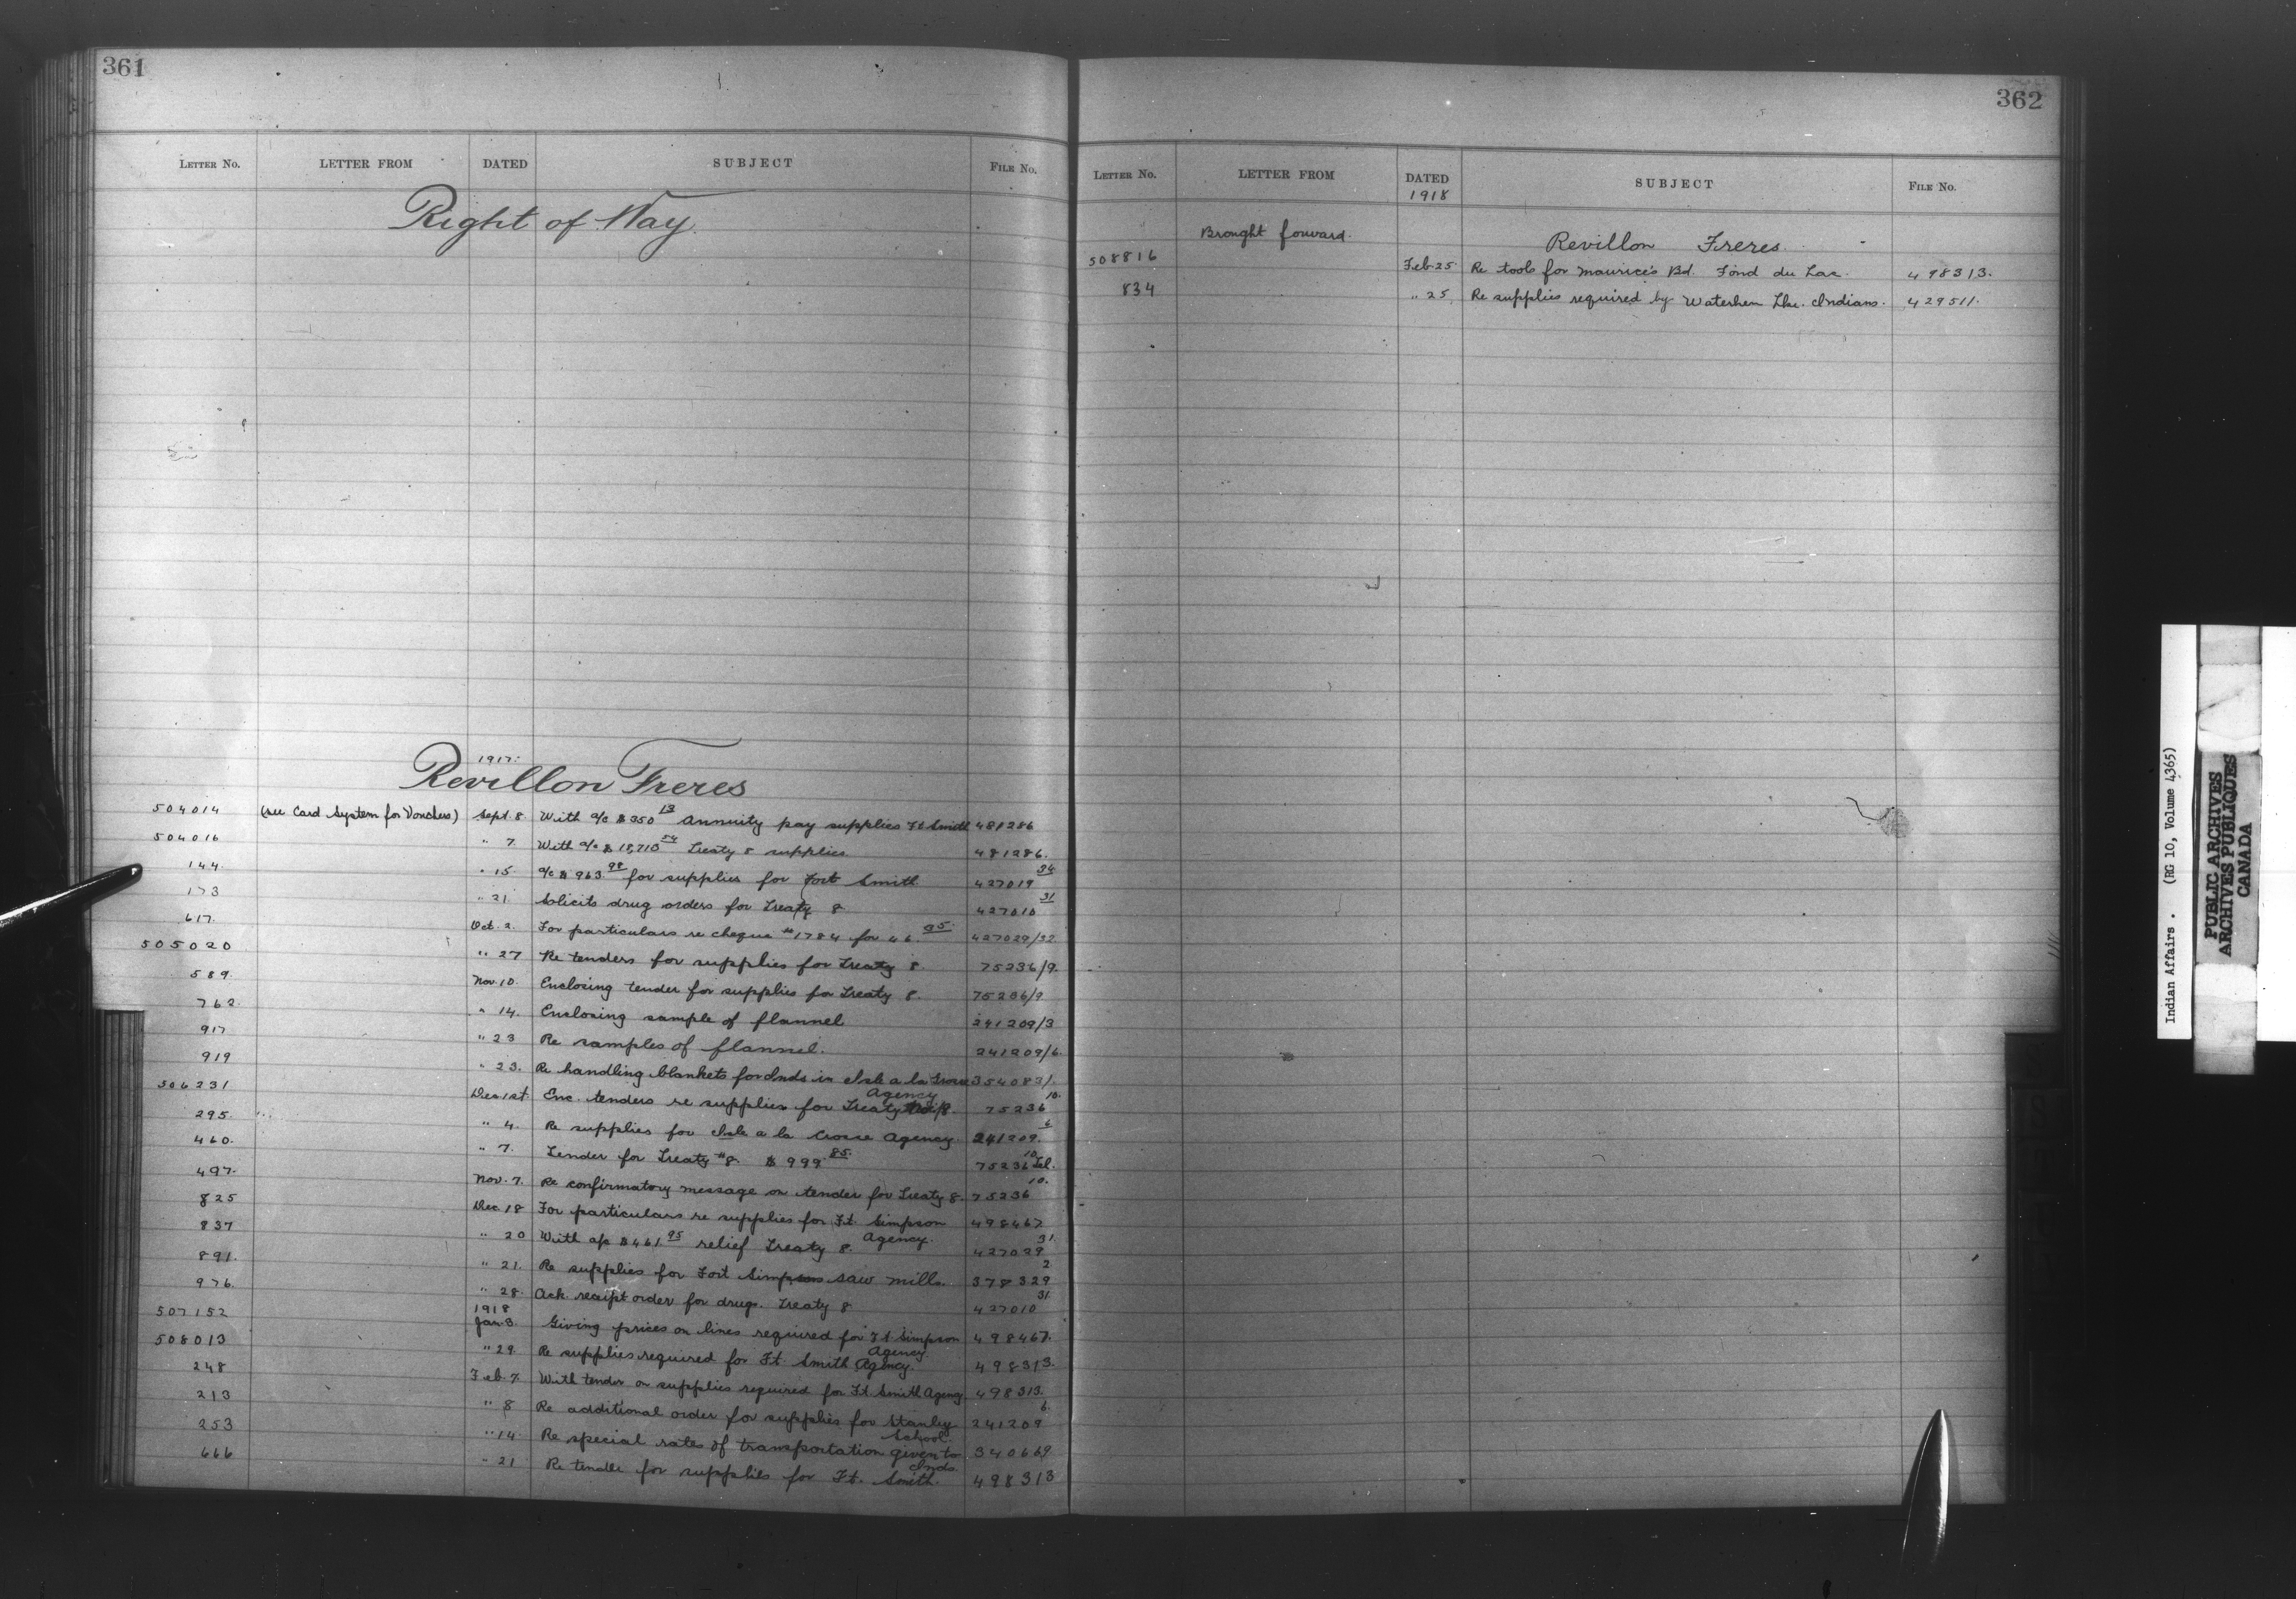 361
LETTER NO. LETTER FROM DATED SUBJECT FILE NO.
Right of Way
1917.
Revillon Freres
504014 (see Card System for Vouchers) Sept. 8 With a/c $350 13 Annuity pay supplies Ft Smith 481286
504016 " 7 With a/c $18,710 54 Treaty 8 supplies 481286.
144. " 15 a/c $963. 98 for supplies for Fort Smith 427019 34
173 " 21 Solicits drug orders for Treaty 8 427010 31
617. Oct. 2. For particulars re cheque #1784 for 46. 95. 427029/32
505020 " 27 Re tenders for supplies for Treaty 8 75236/9.
589. Nov. 10. Enclosing tender for supplies for Treaty 8. 75236/9
762. " 14. Enclosing sample of flannel 241209/3
917 " 23 Re samples of flannel. 241209/6.
919 " 23. Re handling blankets for Inds in Isle a la Crosse Agency 354083/.
506231 Dec 1st Enc. tenders re supplies for Treaty 8. 75236 10.
295. " 4. Re supplies for Isle a la Crosse Agency. 241209. 6
460. " 7. Tender for Treaty #8. $999 85. 75236 10. Tel.
497. Nov. 7. Re confirmatory message on tender for Treaty 8. 75236 10.
825 Dec 18 For particulars re supplies for Ft. Simpson Agency. 498467
837 " 20 With a/c $461 95 relief Treaty 8. 427029 31.
891. " 21. Re supplies for Fort Simpson saw mill. 378329 2
976. " 28. Ack. receipt order for drugs. Treaty 8 427010 31.
1918
507152 Jan 3. Giving prices on lines required for Ft Simpson Agency. 498467.
508013 " 29 Re supplies required for Ft. Smith Agency. 498313.
248 Feb. 7. With tender on supplies required for Ft. Smith Agency. 498313.
213 " 8 Re additional order for supplies for Stanley School. 241209 6.
253 " 14 Re special rates of transportation given to Inds. 340669
666 " 21 Re tender for supplies for Ft. Smith. 498313
362
LETTER NO. LETTER FROM DATED SUBJECT FILE NO.
1918
Brought forward. Revillon Freres.
508816 Feb 25 Re tools for Maurice's Bd. Fond du Lac. 498313.
834 " 25 Re supplies required by Waterhen Lke. Indians. 429511.
Indian Affairs. (RG 10, Volume 4365)
PUBLIC ARCHIVES
ARCHIVES PUBLIQUES
CANADA